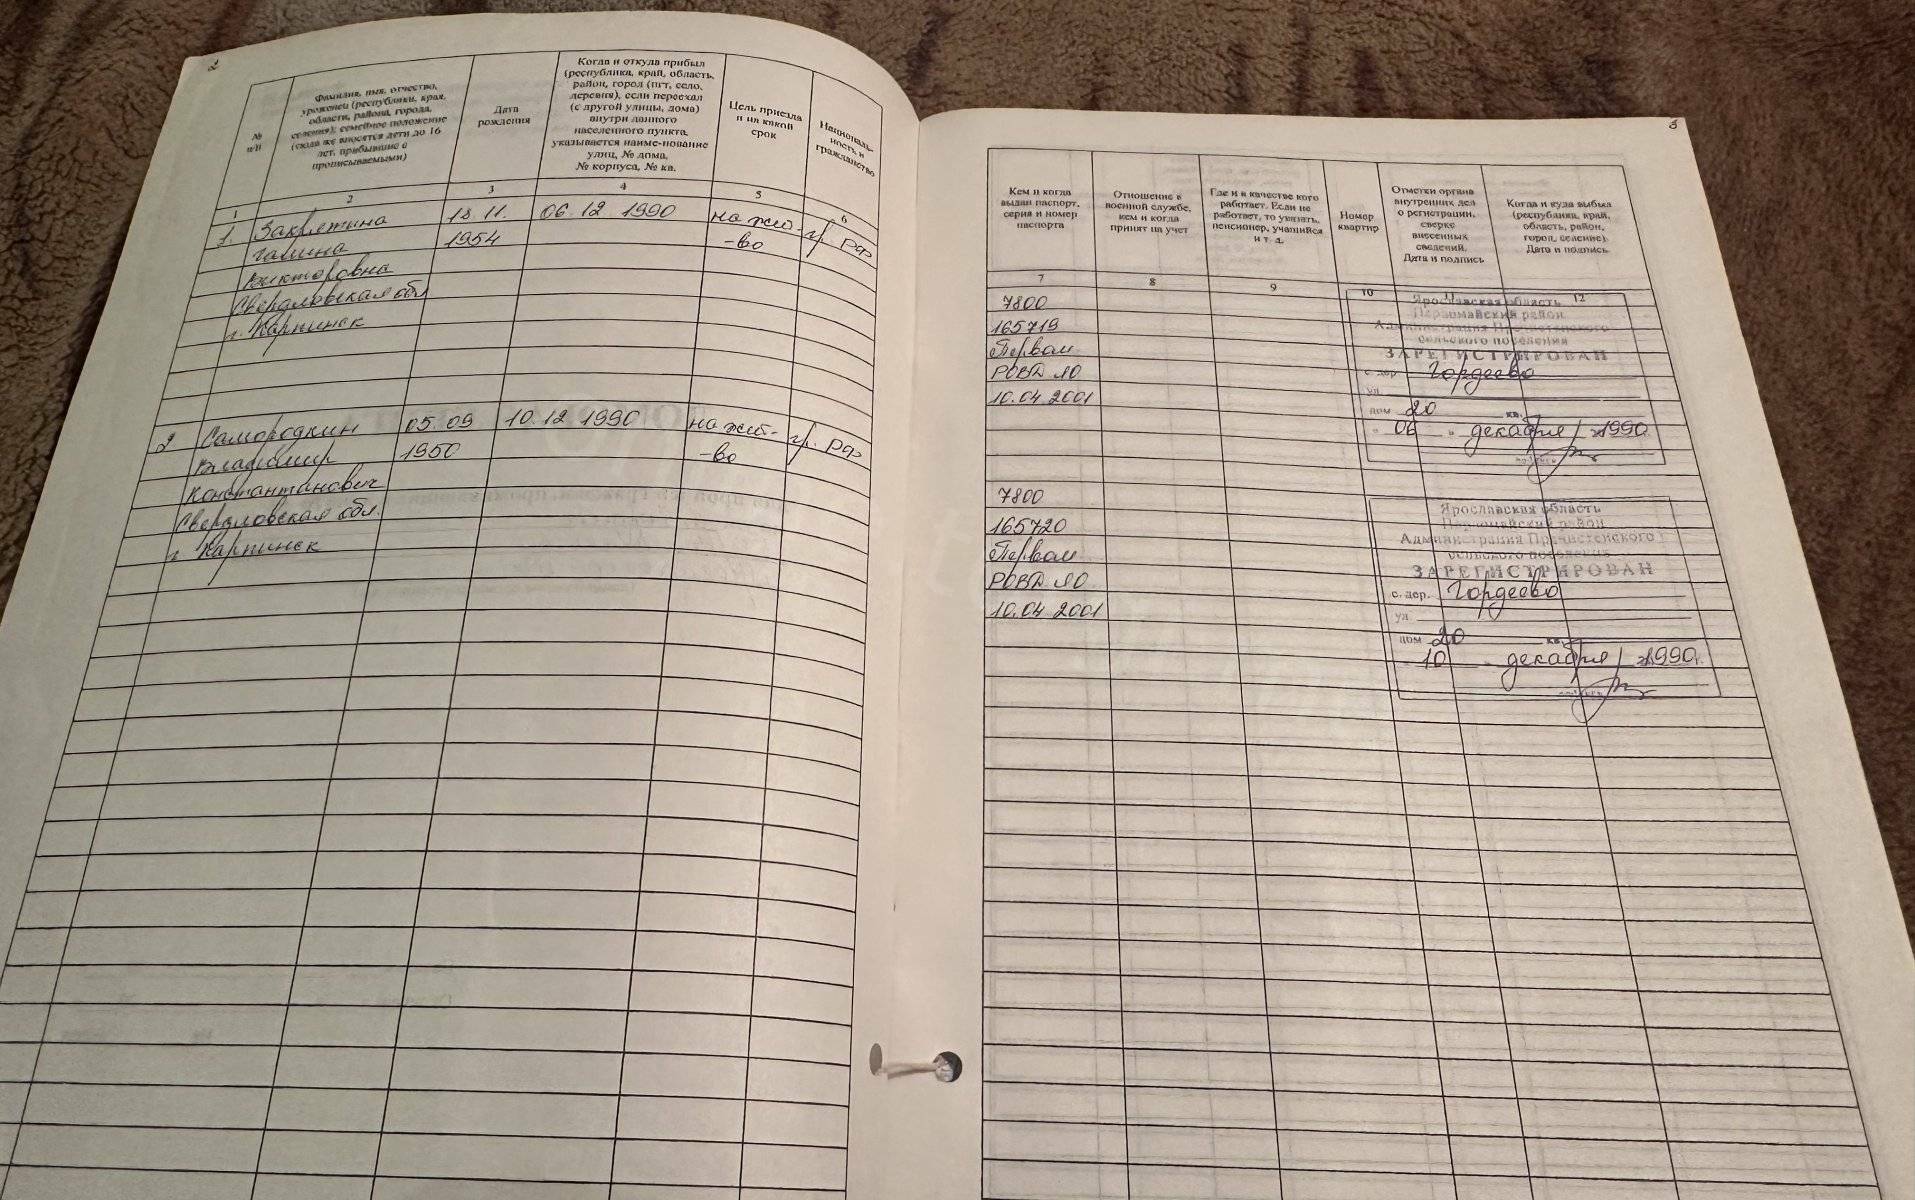 2
№
п/п
Фамилия, имя, отчество,
уроженец (республики, края,
области, района, города,
селения); семейное положение
(сюда же вносятся дети до 16
лет, прибывшие с
прописываемыми)
Дата
рождения
Когда и откуда прибыл
(республика, край, область,
район, город (пгт, село,
деревня), если переехал
(с другой улицы, дома)
внутри данного
населенного пункта,
указывается наиме-нование
улиц, № дома,
№ корпуса, № кв.
Цель приезда
и на какой
срок
Националь-
ность и
гражданство
1 2 3 4 5 6
1. Закрятина 18. 11. 06. 12 1990 на жит- гр. РФ
Галина 1954 -во
Викторовна
Свердловская обл
г. Карпинск
2 Самородкин 05. 09 10. 12 1990 на жит- гр. РФ
Владимир 1950 -во
Константинович
Свердловская обл.
г Карпинск
3
Кем и когда
выдан паспорт,
серия и номер
паспорта
Отношение к
военной службе,
кем и когда
принят на учет
Где и в качестве кого
работает. Если не
работает, то указать,
пенсионер, учащийся
и т. д.
Номер
квартир
Отметки органа
внутренних дел
о регистрации,
сверке
внесенных
сведений.
Дата и подпись
Когда и куда выбыл
(республика, край,
область, район,
город, селение).
Дата и подпись
7 8 9 10 11 12
7800
165719
Первом
РОВД ЯО
10.04 2001
Ярославская область
Первомайский район
Администрация Пречистенского
сельского поселения
ЗАРЕГИСТРИРОВАН
с. дер. Гордеево
ул.
дом 20 кв.
" 06 " декабря 1990
подпись
7800
165720
Первом
РОВД ЯО
10.04 2001
Ярославская область
Первомайский район
Администрация Пречистенского
сельского поселения
ЗАРЕГИСТРИРОВАН
с. дер. Гордеево
ул.
дом 20 кв.
" 10 " декабря 1990г.
подпись